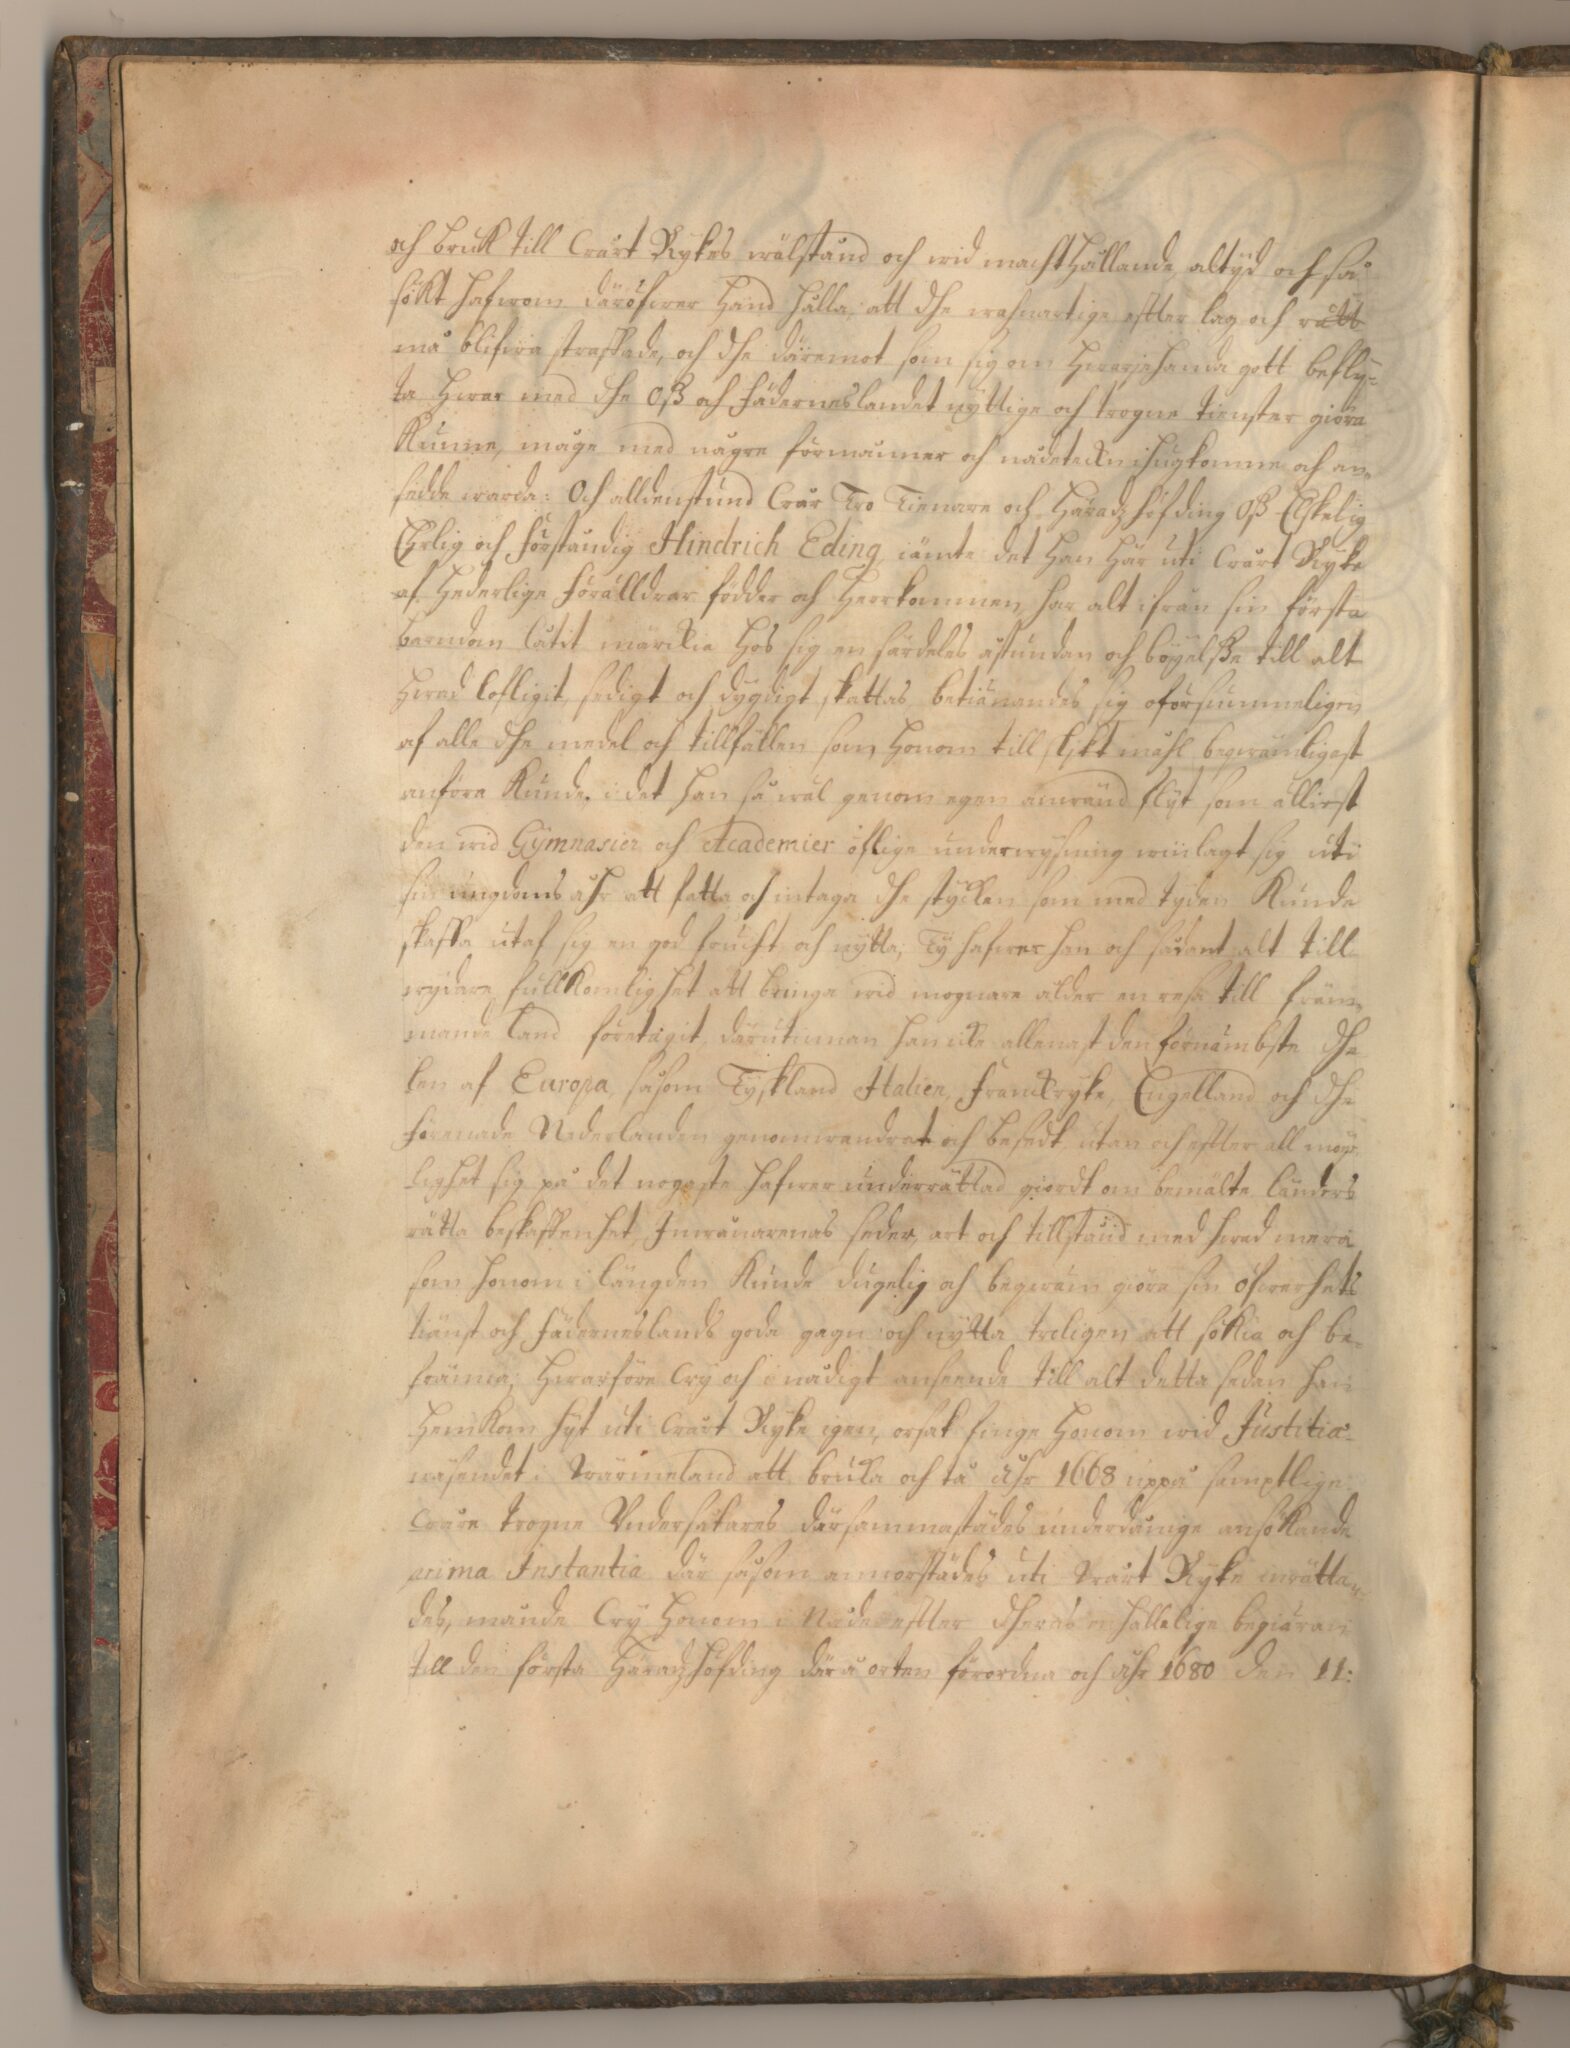 och bruk till Wårt Rykes wälstånd och wid macht Hållande altyd och så
sökt hafwom däröfwer Hand hålla, att dhe wahnartige effter lag och rätt
må blifwa straffade, och dhe däremot som sig om Hwarjehanda gott befly-
ta hwar med dhe Oß och Fäderneslandet nyttige och trogne tienster giöra
Kunne, måge med någre förmauner och nådetekn ihugkomne och an-
sedde warda: Och alldenstund Wår Tro Tienare och Häradzhöfding Oß Elskelig
Ehrlig och förståndig Hindrich Eding, iämte det Han Här uti Wårt Ryke
af Hederlige Föräldrar födder och Herrkommen, har alt ifrån sin första
barndom låtit märkia Hos sig en särdeles åstundan och böyelße till alt
Hwad lofligit, sedigt och dygdigt skattas, betiänandes sig oförsummeligen
af alle dhe medel och tillfällen som Honom till slykt måhl beqwämligast
anföra Kunde. i det han så wäl genom egen anwänd flyt som elliest
den wid Gymnasier och Academier öflige underwysning winlagt sig uti
sin ungdoms åhr att fatta och intaga dhe stycken som med tyden Kunde
skaffa utaf sig en god frucht och nytta; Ty hafwer han och sådant alt till
wydare fullKomlighet att bringa wid mognare ålder en resa till främ-
mande Land företagit, därutinnan han icke allenast den förnämbste dhe
len af Europa, såsom Tyskland Italien, Franckryke, Engelland och dhe
Förenade Nederlanden genomwandrat och besedt, utan och effter all möy-
lighet sig på det nogaste hafwer underrättad giordt om bemälte länders
rätta beskaffenhet, Inwånarenas seder, art och tillstånd med hwad mera
som honom i längden Kunde dugelig och beqwäm giöra sin öfwerhets
tiänst och Fäderneslands goda gagn och nytta troligen att sökia och be-
främia; Hwarföre Wy och i nådigt anseende till alt detta sedan han
HemKom hyt uti Wårt Ryke igen, orsak finge Honom wid Justitiæ
wäsendet i Wärmeland att bruka och tå åhr 1668 uppå samptlige
Wåre trogne Undersåtares därsammastädes underdånige ansökande
prima Instantia där såsom annorstädes uti Wårt Ryke inrätta-
des, månde Wy Honom i Nåde effter dheras enhällelige begiäran
till den första Häradzhöfding där å orten förordna och åhr 1680 den 11: